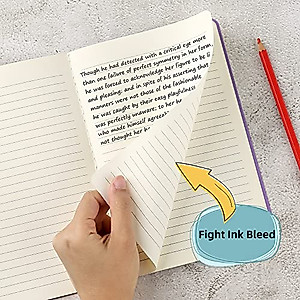 Though he had detected with a critical eye more
than one failure of perfect symmetry in her form,
he was forced to acknowledge her figure to be li
and pleasing; and in spite of his asserting that
manners were not those of the fashionable
he was caught by their easy playfulness
was perfectly unaware; to her he
who made himself agreea
not thought her
Fight Ink Bleed